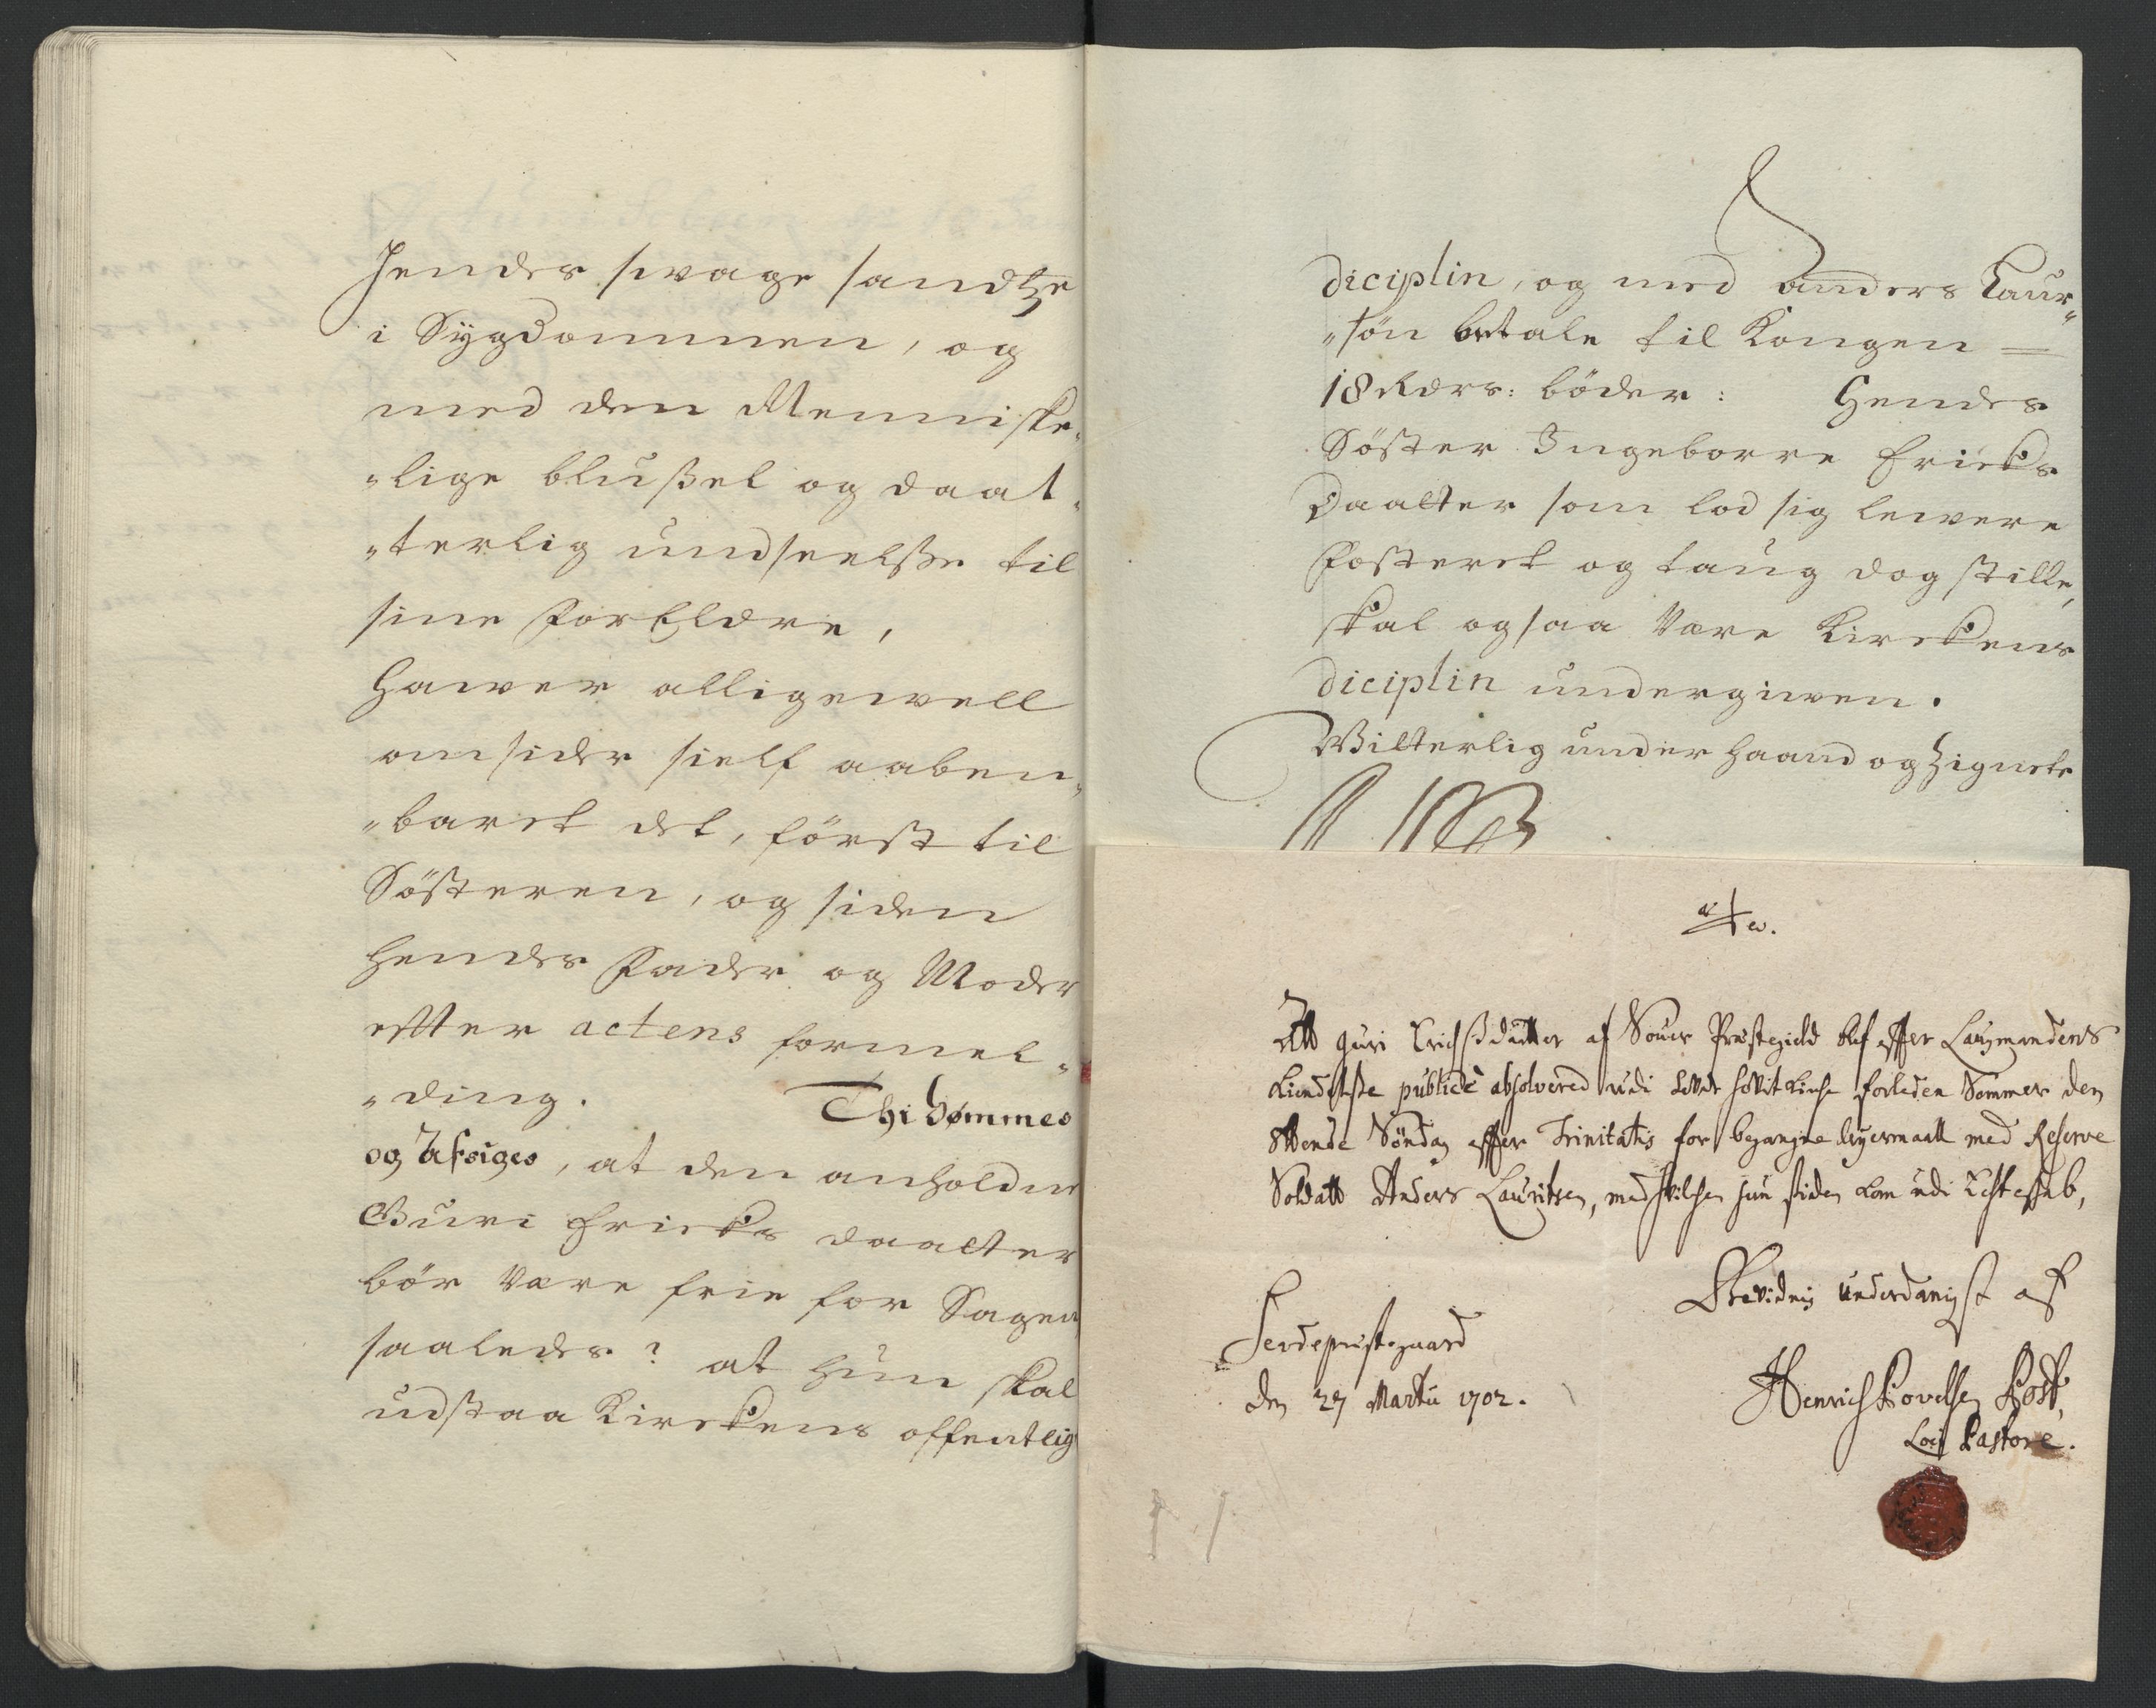 hendes svage sandtze
i Sÿgdommen, og
med den Menniske„
„lige blußel og daat„
„terlig undseelße til
sine ForEldre,
hawer alligewell
omsider sielf aaben„
„baret det, först til
SöSteren, og siden
hendes Fader og Moder
efter actens formel„
„ding. Thi dømmes
og Afsiges, at den anholdne
Guri Ericks daatter
bör Være frie for Sagen
saaledes: at hun skal
udstaa Kirckens offentlig
diciplin, og med anders Laur„
„sön betale til Kongen =
18 Rdrs: böder: Hendes
Söster Ingeborre Ericks
Daatter som lod sig lewere
Fosteret og taug dog stille,
skal ogsaa Være Kirckens
diciplin undergiwen.
Witterlig under haand og Zignete
Att guri Erichsdaatter af Præstegield blef effter Laugmandens
Kiendelße publicè absolvered udi Kirche forleden Sommer den
8tende Söndag effter Trinitatis for begangne leyermaall med Reserve
Soldatt Anders Lauritsen, med hvilchen hun siden kom udi Echteskab,
Bevidnis underdanigst af
præstegaard
den 27 Martii 1702.
Henrich Povelsen
Loci Pastore.